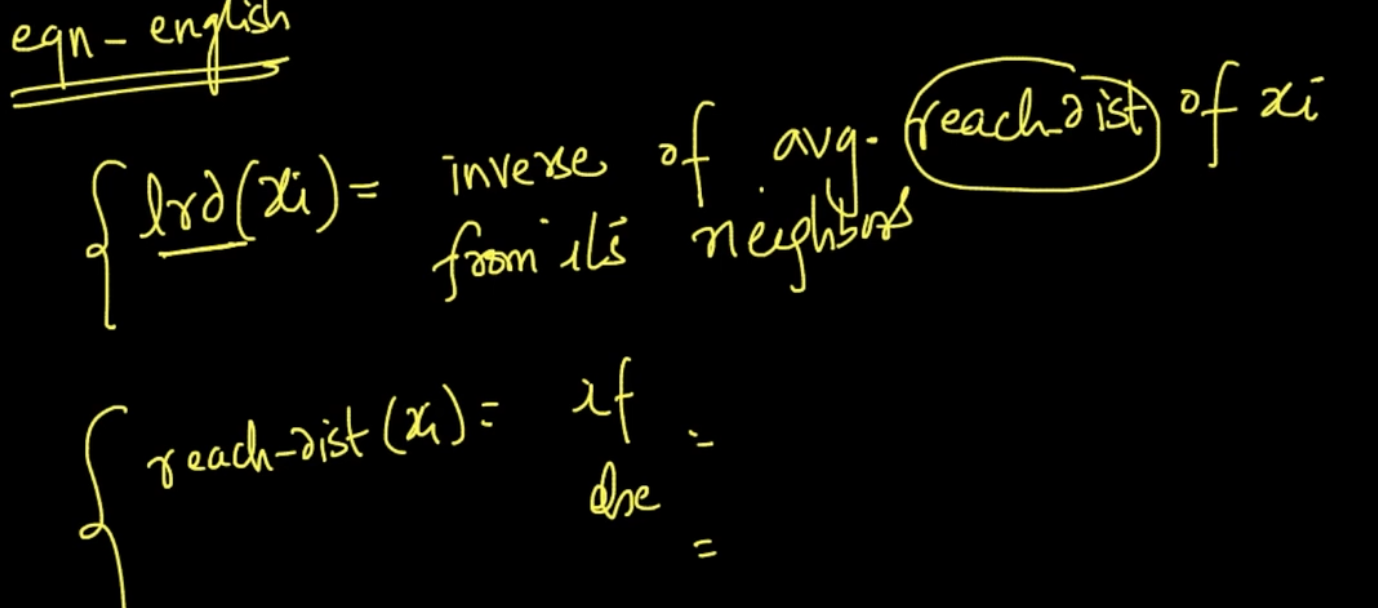 eqn - english
lrd(xi) = inverse of avg. reach-dist of xi
from its neighbors
reach-dist (xi) = if =
else
=